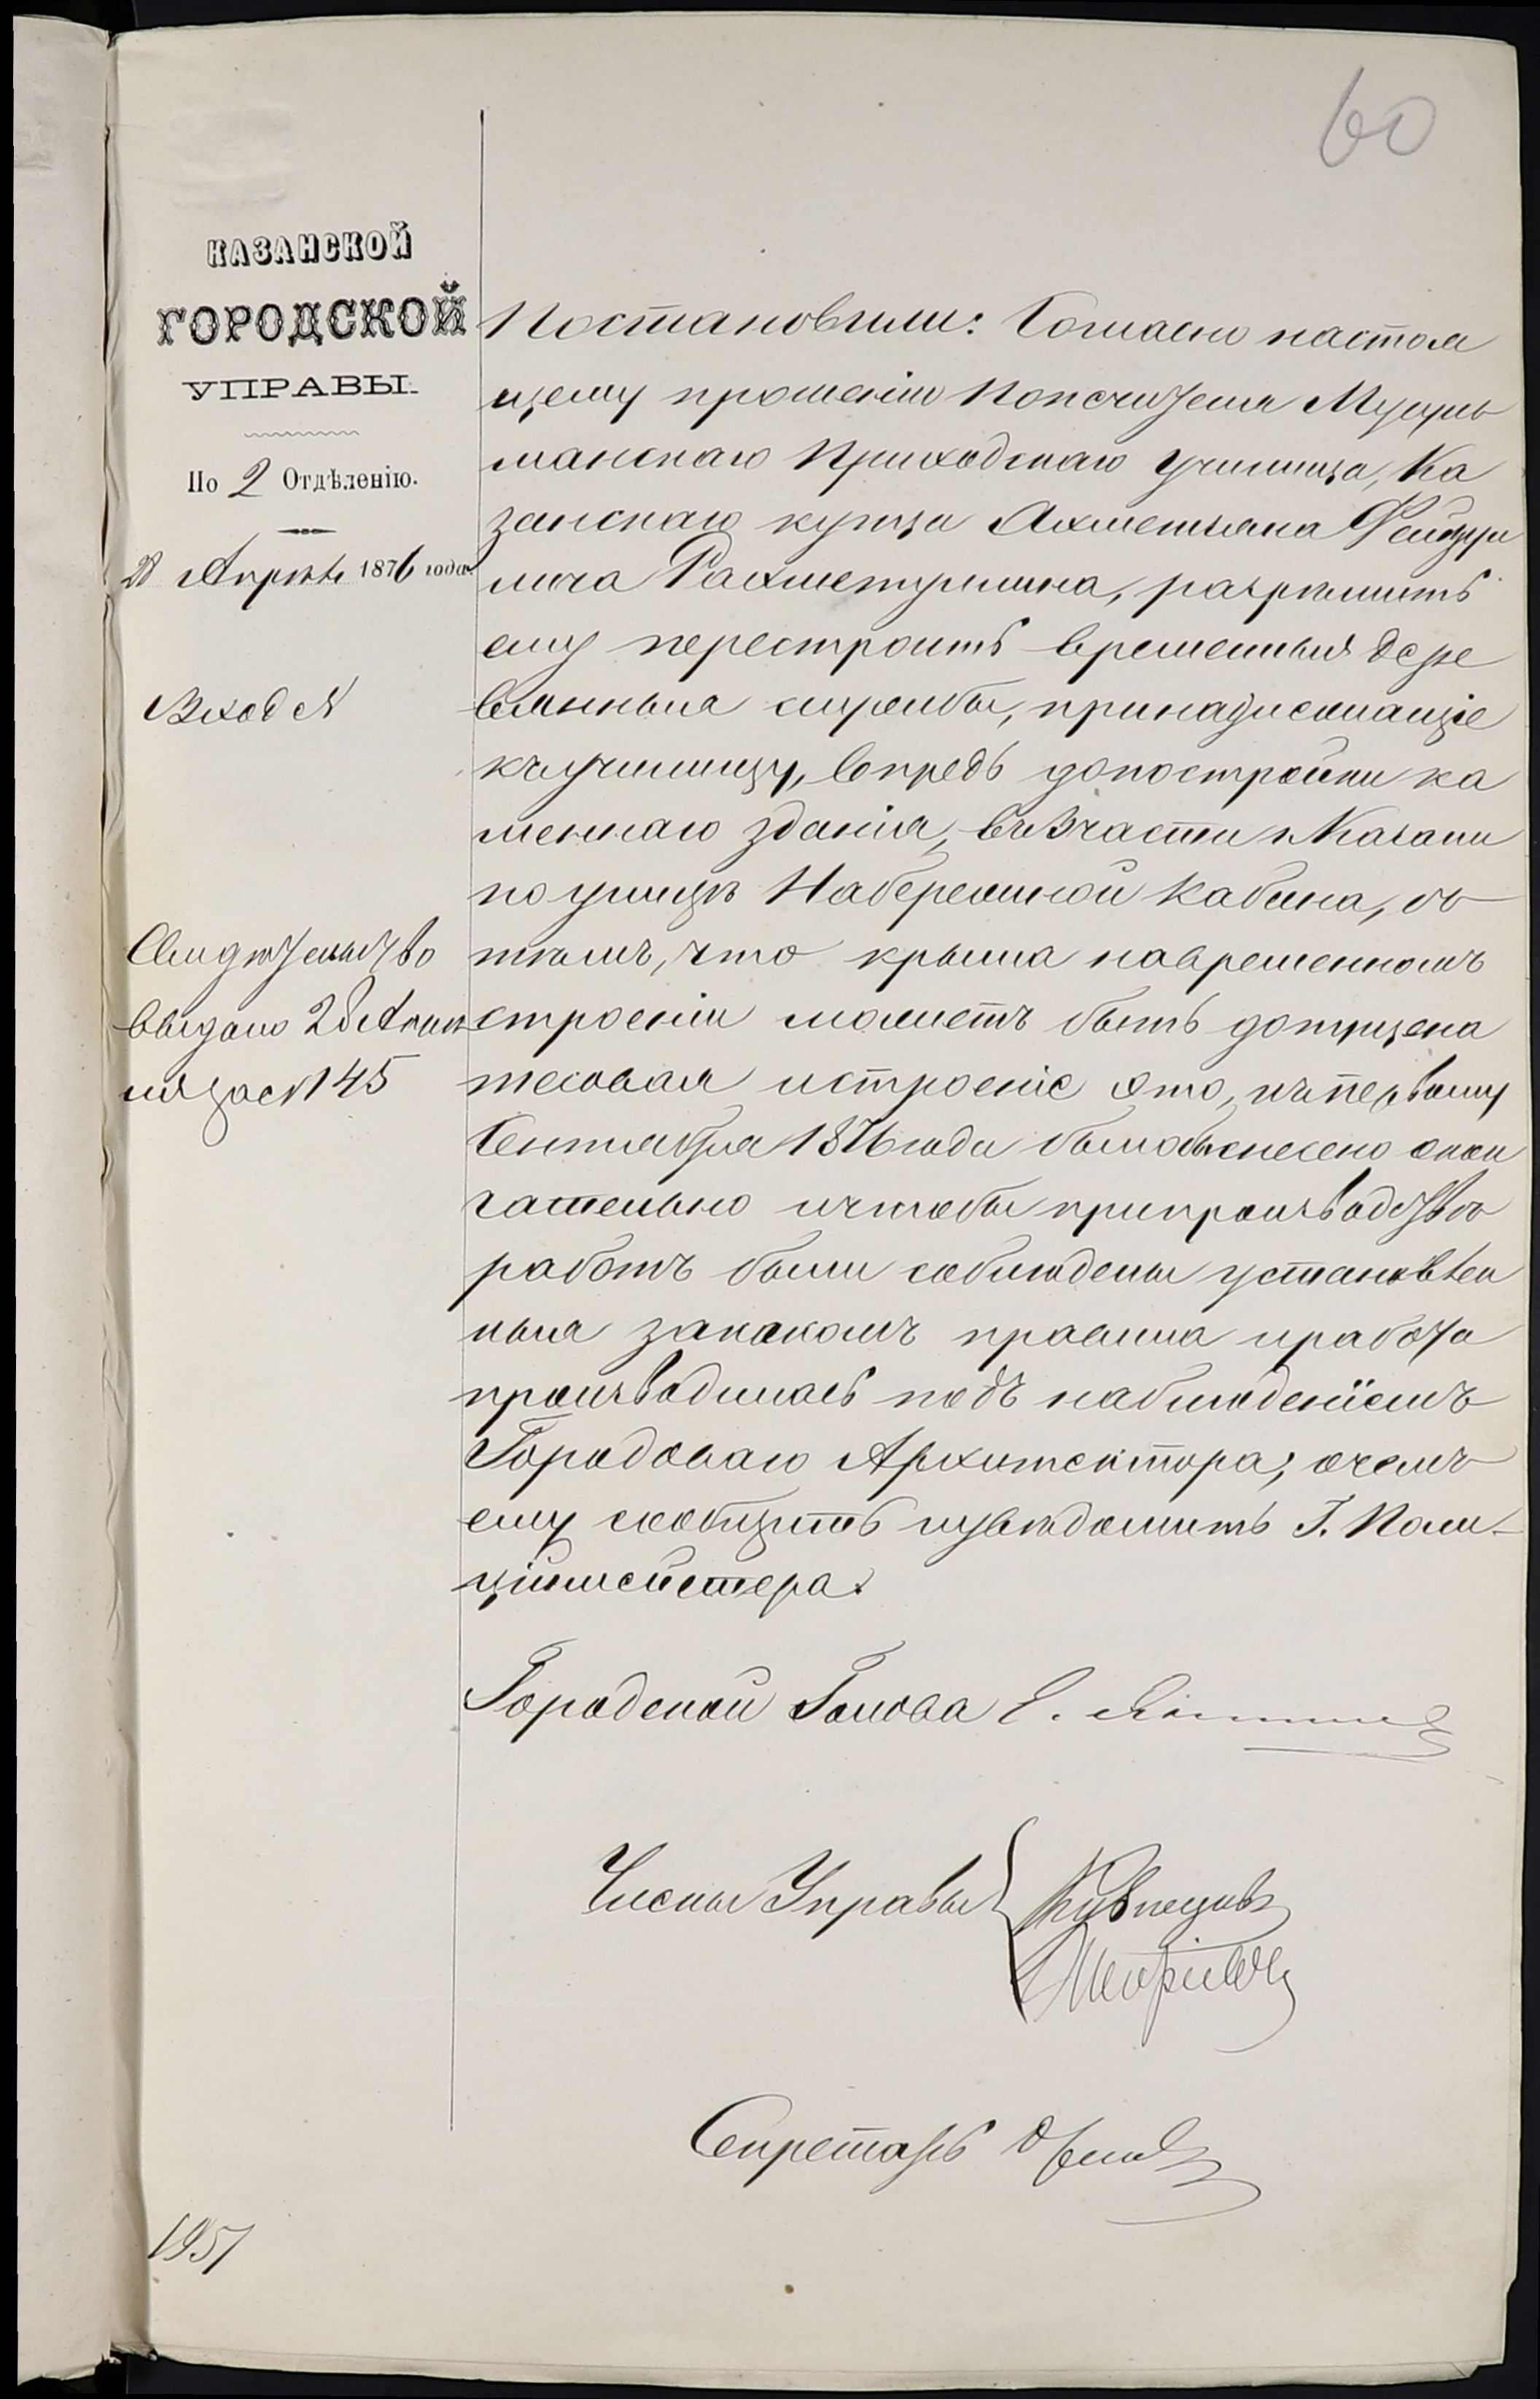 60
КАЗАНСКОЙ
ГОРОДСКОЙ
УПРАВЫ.
По 2 Отдѣленію.
28 Апрѣля 1876 года.
Вход №
Свидѣтельство
выдано 28 Апрѣ
ля за № 145
Постановили: Согласно настоя
щему прошенію Попечителя Мусуль
манскаго Приходскаго училища, Ка
занскаго купца Ахметьяна
Рахметуллина, разрѣшить
ему перестроить временныя дере
вянныя службы, принадлежащіе
къ училищу, впредь до постройки ка
меннаго зданія, въ 3 части г. Казани
по улицѣ Набережной Кабана, съ
тѣмъ, что крыша на временномъ
строеніи можетъ быть допущена
тесовая и строеніе это, къ первому
Сентября 1876 года было бы снесено окон
чательно и чтобы при производствѣ
работъ были соблюдены установлен
ныя закономъ правила и работа
производилась подъ наблюденіемъ
Городоваго Архитектора; о чемъ
ему сообщить и увѣдомить Г. Поли-
ціймейстера.
Городской Голова Е.
Члены Управы Кузнецовъ
Секретарь
1951